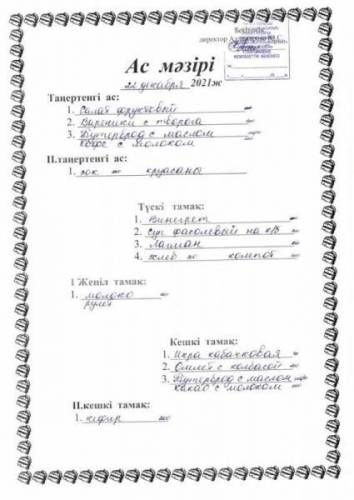 Бекітемін
директор
Ас мәзірі
22 декабря 2021ж
Таңертенгі ас:
1. Салат фруктовый
2. Вареники с творога
3. Бутерброд с маслом
кофе с молоком
ІІ.таңертенгі ас:
1. сок круасаны
Түскі тамақ:
1. Винегрет
2. Суп фасолевый на к/б
3. Лагман
4. хлеб компот
І Жеңіл тамақ:
1. молоко
рулет
Кешкі тамақ:
1. Икра кабачковая
2. Омлет с колбасой
3. Бутерброд с маслом
какао с молоком
ІІ.кешкі тамақ:
1. кефир